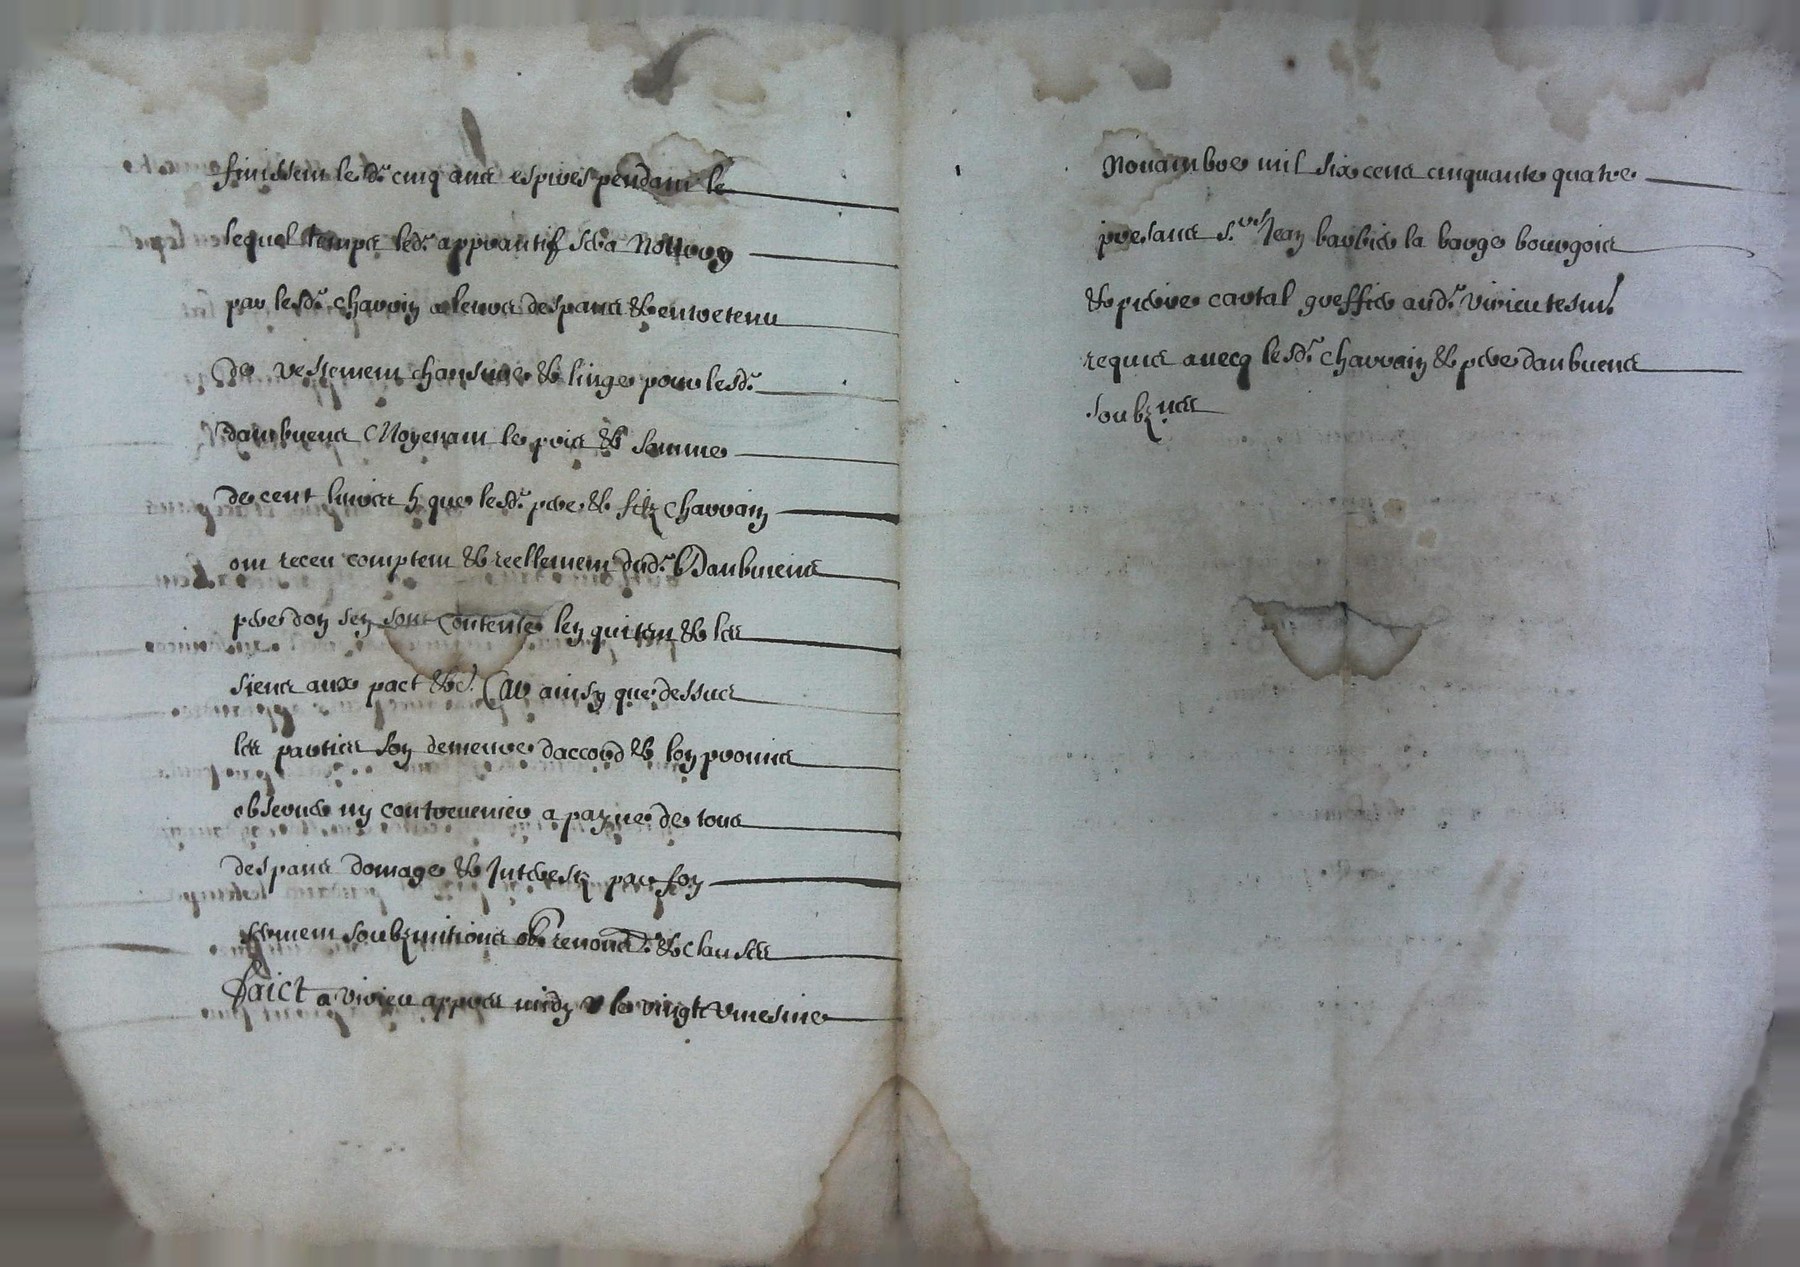 finissent lesd. cinq ans espirés pendant le
lequel temps led. apprantif sera nourry
par lesd. Charrin a leurs despans & entretenu
de vestement chansure & linge pour lesd.
Daubuens Moyenant le pris & somme
de cent livres que lesd. pere & filz Charrain
ont receu comptent & reellement dud. Daubuens
pere don sen sont contente len quitent & les
siens aux pact &c. Car ainsy que dessus
les parties son demeure daccord & lon promis
observer ny contrevenir a payne de tous
despans domage & Interestz par son
serment soubzmitions ob. renonc. & clauses
Faict a Virieu appres midy le vingt vnesme
Novambre mil six cens cinquante quatre
presans s. Jean barbier la barge bourgois
& pierre cartal greffier aud. Virieu tesm.
requis avecq lesd. Charrain & pere daubuens
soubz.nes